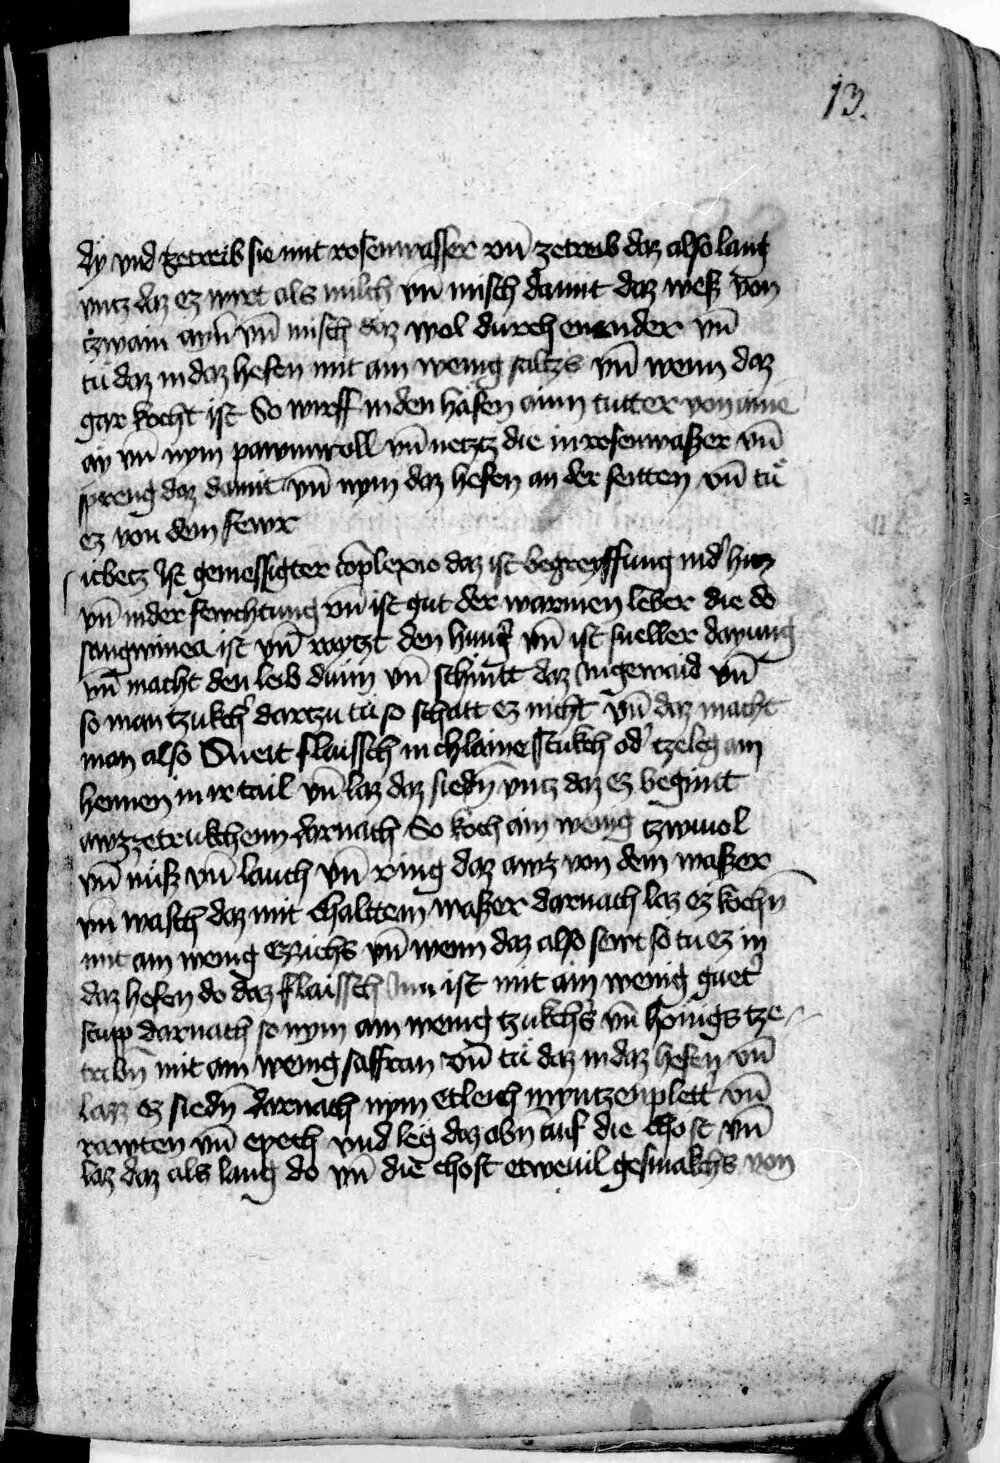 13.
dy vnd zetreib sie mit rosenwasser vn̄ zetreib daz also lang
vntz daz ez wirt als milch vn̄ misch damit daz weſz von
tzwain ayrn̄ vn̄ misch daz wol durch enander vn̄
tů daz in daz hefen mit ain wenig saltzs vn̄ wenn daz
gar kocht ist So wirff in den häfen ainn tutter von aim̄e
ay vn̄ nym pawmwoll vn̄ netzt die in rosenwaſzer vn̄
spreng daz damit vn̄ nym daz hefen an der seitten vn̄ tů
ez von dem fewr
icbetz Ist gemessigter cōplexio daz ist begreyffung in d' hitz
vn̄ in der fewchtung vn̄ ist gut der warmen leber die do
sangwinea ist vn̄ raytzt den hung' vn̄ ist sneller dayung
vn̄ macht den leib dünn vn̄ schmirt daz Ingewaid vn̄
so man tzukch' dartzu tů so schatt ez nicht vn̄ daz macht
man also Sneit flaissch in chlaine stukch od' tzeleg ain
hennen in ir tail vn̄ laz daz siedn̄ vntz daz ez begint
awzzetrukchenn darnach So koch ain wenig tzwiuol
vn̄ vn̄ lauch vn̄ ring daz awz von dem waſzer
vn̄ wasch daz mit chalttem waſzer darnach laz ez kochn̄
mit ain wenig ezzichs vn̄ wenn daz also sewt so tu ez in
daz hefen do daz flaissch Inn ist mit ain wenig guet'
stupp darnach so nym ain wenig tzukch's vn̄ honigs tze
tribn̄ mit ain wenig saffran vn̄ tů daz in daz hefen vn̄
lazz ez siedn̄ darnach nym etleich myntzenplett vn̄
rawten vn̄ epech vnd leg daz obn̄ auf die chost vn̄
laz daz als lang do vn̄ die chost etweuil gesmakchs von